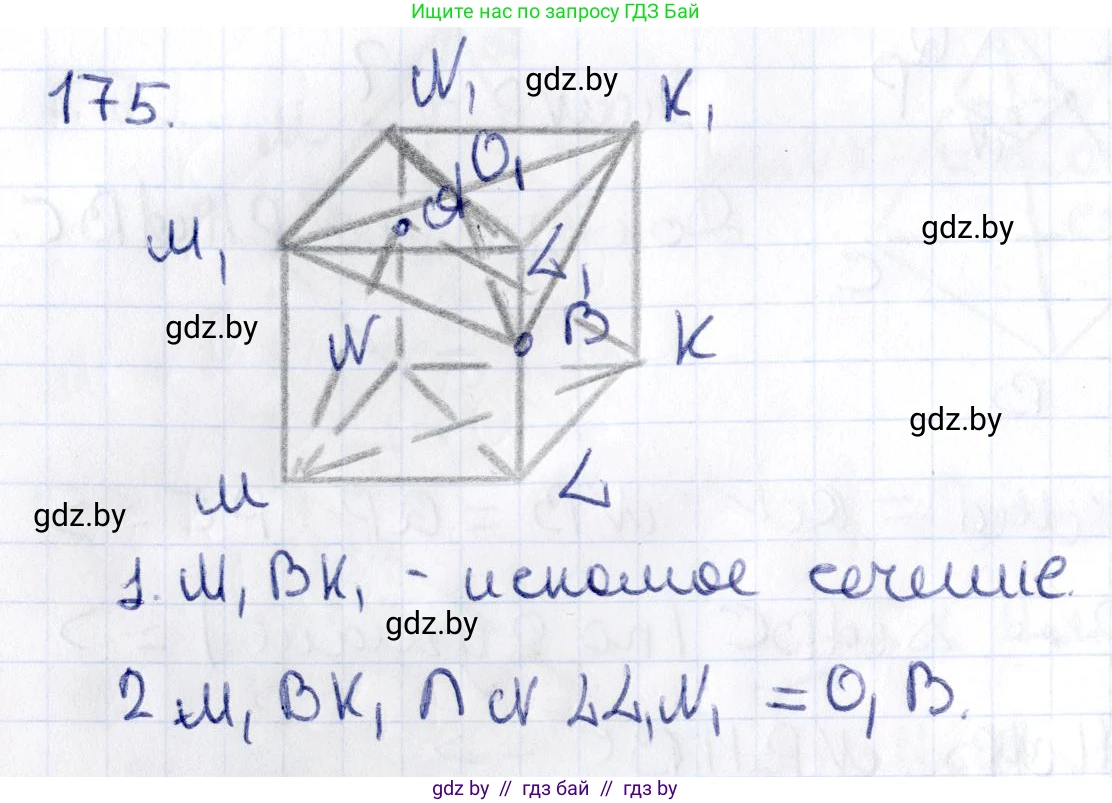 Ищите нас по запросу ГДЗ Бай
175.
N₁ gdz.by K₁
O₁
A
M₁ gdz.by
L₁
gdz.by B
N K
gdz.by
M L
gdz.by
1. M₁BK₁ - искомое сечение.
gdz.by
2 M₁BK₁ ∩ NLL₁N₁ = O₁B.
gdz by // гдз бай // гдз by